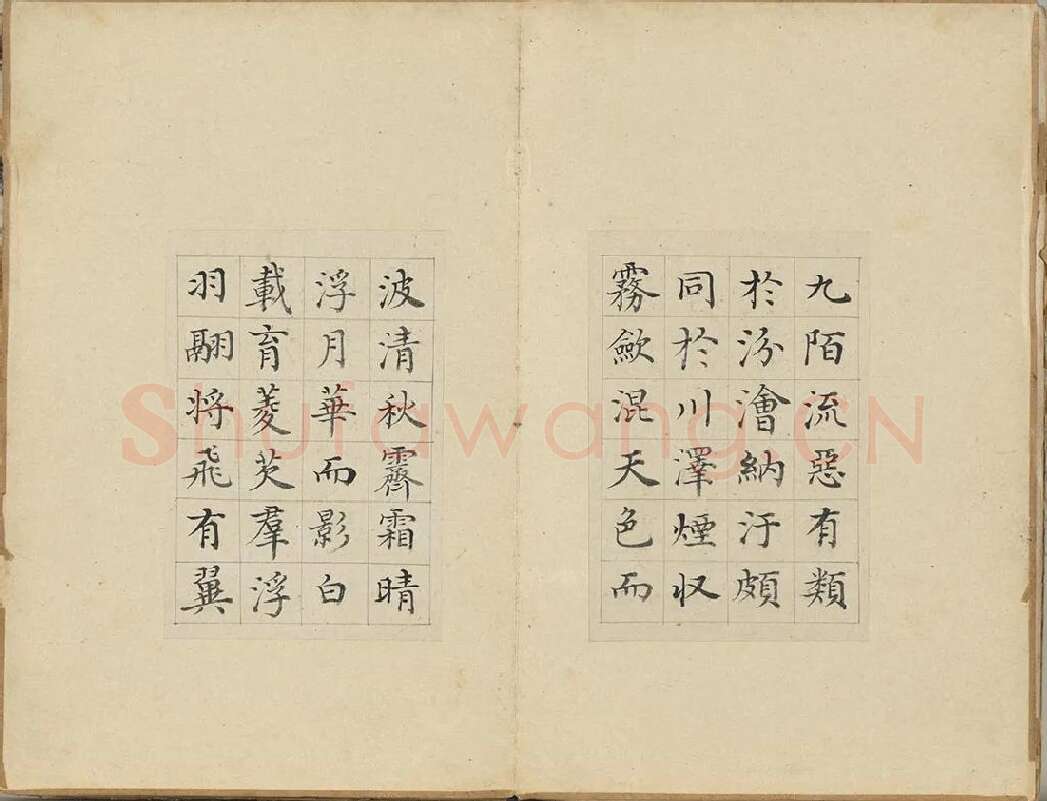 九陌流惡有類
於汾澮納汙頗
同於川澤煙収
霧歛混天色而
波清秋霽霜晴
浮月華而影白
載育菱芡羣浮
羽翮将飛有翼
Shufawang.CN